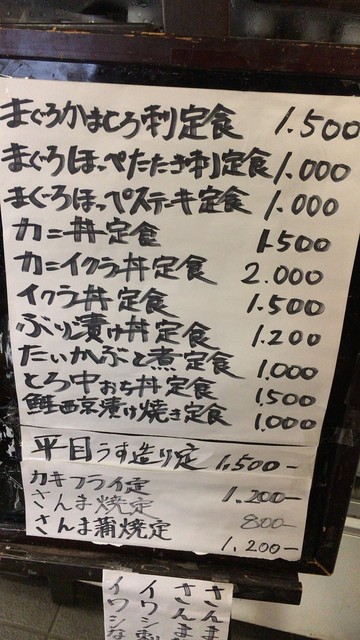 まぐろかまとろ刺定食 1.500
まぐろほっぺたたき刺定食 1.000
まぐろほっぺステーキ定食 1.000
カニ丼定食 1.500
カニイクラ丼定食 2.000
イクラ丼定食 1.500
ぶり漬け丼定食 1.200
たいかぶと煮定食 1.000
とろ中おち丼定食 1.500
鮭西京漬け焼き定食 1.000
平目うす造り定 1.500-
カキフライ定 1.200-
さんま焼定 800-
さんま蒲焼定 1.200-
さんま
さんま
イワシ刺
イワシな